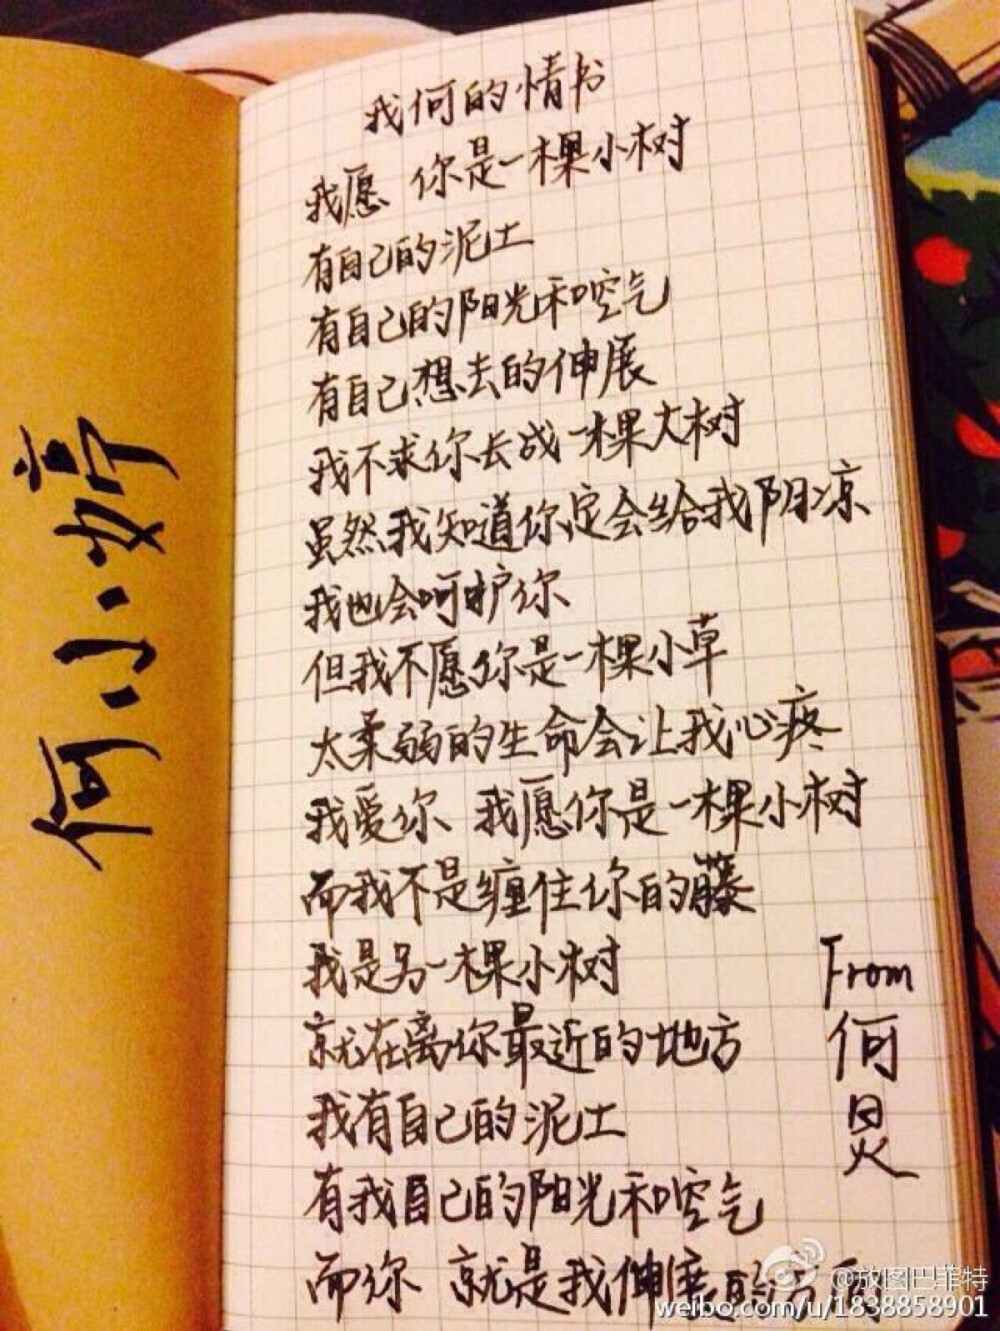 何小婷
我何的情书
我愿 你是一棵小树
有自己的泥土
有自己的阳光和空气
有自己想去的伸展
我不求你长成一棵大树
虽然我知道你定会给我阴凉
我也会呵护你
但我不愿你是一棵小草
太柔弱的生命会让我心疼
我爱你、我愿你是一棵小树
而我不是缠住你的藤
我是另一棵小树
就在离你最近的地方
我有自己的泥土
有我自己的阳光和空气
而你 就是我伸展的方向
From
何
炅
@放图巴菲特
weibo.com/u/1838858901